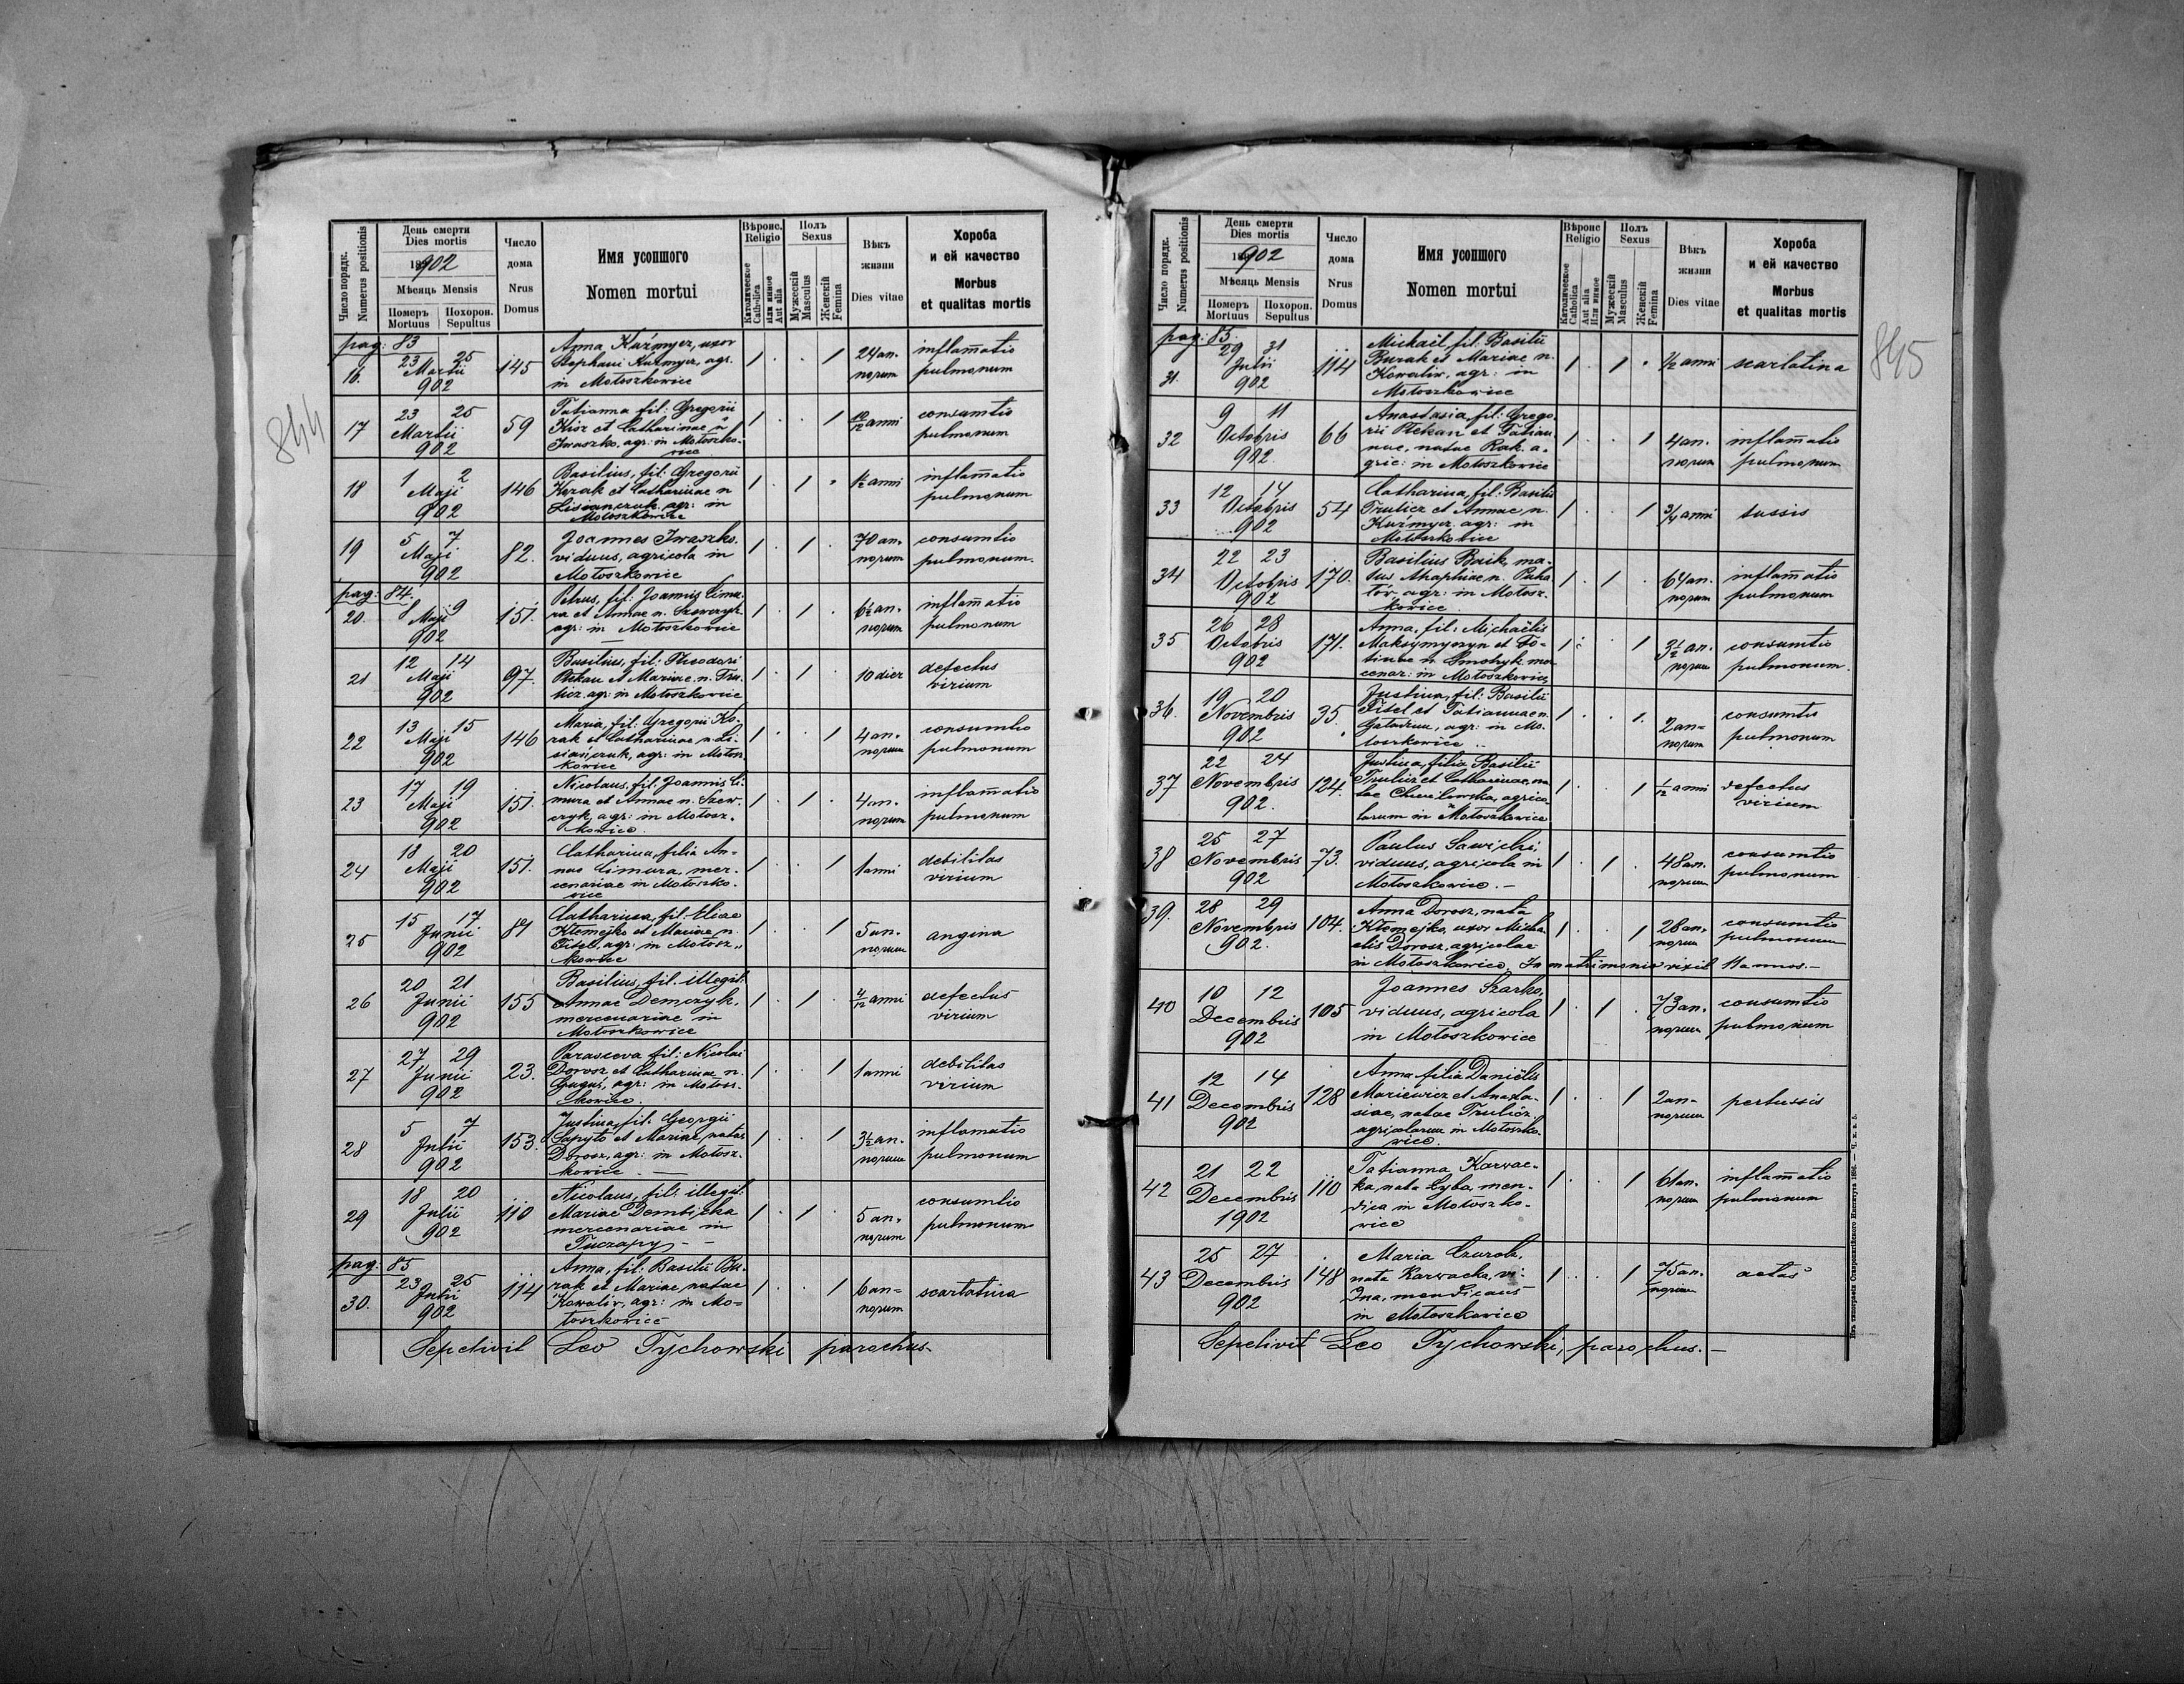 844
Число порядк.
Numerus positionis
День смерти
Dies mortis
18902
Мѣсяць Mensis
Померъ
Mortuus
Похорон.
Sepultus
Число
дома
Nrus
Domus
Имя усопшого
Nomen mortui
Вѣроис.
Religio
Католическое
Catholica
или иное
Aut alia
Полъ
Sexus
Мужескій
Masculus
Женскій
Femina
Вѣкъ
жизни
Dies vitae
Хороба
и ей качество
Morbus
et qualitas mortis
pag: 83
16. 23 25 Martii 902 145
Anna Kuźmycz, uxor
Stephani Kuźmycz, agr.
in Mołoszkowice
1 . . 1 24 an-
norum
inflam̄atio
pulmonum
17 23 25 Martii 902 59
Tatianna fil: Gregorii
Kisz et Catharinae
Iwaszko, agr: in Mołoszko-
wice
1 . . 1 10/12 anni
consumtio
pulmonum
18 1 2 Maji 902 146
Basilius, fil: Gregorii
Kozak et Catharinae n
agr: in
Mołoszkowice
1 . 1 . 1½ anni
inflam̄atio
pulmonum
19 5 7 Maji 902 82.
Joannes Iwaszko,
viduus, agricola in
Mołoszkowice
1 . 1 . 70 an-
norum
consumtio
pulmonum.
pag: 84.
20. 8 9 Maji 902 151.
Petrus, fil: Joannis Cimu-
ra et Annae n. Szewczyk
agr: in Mołoszkowice
1 . 1 . 6½ an-
norum
inflam̄atio
pulmonum
21 12 14 Maji 902 97.
Basilius, fil: Theodori
Ptekan et Mariae n. Tru-
licz agr: in Mołoszkowice
1 . 1 . 10 dier
defectus
virium
22 13 15 Maji 902 146
Maria, fil: Gregorii Ko-
zak et Catharinae n Li-
siańczuk, agr: in Mołosz-
kowice
1 . . 1 4 an-
norum
consumtio
pulmonum
23 17 19 Maji 902 151.
Nicolaus, fil: Joannis Ci-
mura et Annae n. Szew-
czyk, agr: in Mołosz-
kowice.
1 . 1 . 4 an-
norum
inflam̄atio
pulmonum
24 18 20 Maji 902 151.
Catharina, filia An-
nae Cimura, mer-
cenariae in Mołoszko-
wice
1 . . 1 1 anni
debilitas
virium
25 15 17 Junii 902 84
Catharina, fil: Eliae
Kłemejko et Mariae n.
Fitel, agr: in Mołosz-
kowice
1 . . 1 5 an-
norum
angina
26 20 21 Junii 902 155
Basilius, fil: illegit:
Annae Demczyk,
mercenariae in
Mołoszkowice
1 . 1 . 4/12 anni
defectus
virium
27 27 29 Junii 902 23.
Parasceva fil: Nicolai
Dorosz et Catharinae n.
Gugus, agr: in Mołosz-
kowice.
1 . . 1 1 anni
debilitas
virium
28 5 7 Julii 902 153.
Justina, fil: Georgii
Sapyto et Mariae, natae
Dorosz, agr: in Mołosz-
kowice.
1 . . 1 3½ an-
norum
inflamatio
pulmonum
29 18 20 Julii 902 110
Nicolaus, fil: illegit:
Mariae Dembicka
mercenariae in
Tuczapy
1 . 1 . 5 an-
norum
consumtio
pulmonum
pag: 85
30. 23 25 Julii 902 114
Anna, fil: Basilii Bu-
rak et Mariae, natae
Kowaliw, agr: in Mo-
łoszkowice
1 . . 1 6 an-
norum
scarlatina
Sepelivit Leo Tychowski parochus.
845
Число порядк.
Numerus positionis
День смерти
Dies mortis
18902
Мѣсяць Mensis
Померъ
Mortuus
Похорон.
Sepultus
Число
дома
Nrus
Domus
Имя усопшого
Nomen mortui
Вѣроис
Religio
Католическое
Catholica
Aut alia
Или иное
Полъ
Sexus
Мужескій
Masculus
Женскій
Femina
Вѣкъ
жизни
Dies vitae
Хороба
и ей качество
Morbus
et qualitas mortis
pag: 85.
31. 29 31 Julii 902 114
Michaël, fil: Basilii
Burak et Mariae n.
Kowaliw, agr: in
Mołoszkowice
1 . 1 . ½ anni
scarlatina
32 9 11 Octobris 902. 66
Anastasia, fil: Grego-
rii Ptekan et Tatian-
nae, natae Rak. a-
gric: in Mołoszkowice
1 . . 1 4 an-
norum
inflam̄atio
pulmonum
33 12 14 Octobris 902 54
Catharina, fil: Basilii
Trulicz et Annae n.
Kuźmycz. agr: in
Mołoszkowice
1 . . 1 3/4 anni
tussis
34 22 23 Octobris 902 170.
Basilius Baik, ma-
tus n.
agr: in Mołosz-
kowice.
1 . 1 . 64 an-
norum
inflam̄atio
pulmonum
35 26 28 Octobris 902 171.
Anna, fil: Michaëlis
Maksymyszyn et Fo-
n. Smohyk mer
cenar: in Mołoszkowice
1 . . 1 3½ an-
norum
consumtio
pulmonum.
36. 19 20 Novembris 902 35.
Justina, fil: Basilii
Fitel et Tatiannae n.
agr: in Mo-
łoszkowice
1 . . 1. 2 an-
norum
consumtio
pulmonum
37 22 24 Novembris 902. 124.
Justina, filia Basilii
Trulicz et Catharinae, na-
tae Chwilowska, agrico-
larum in Mołoszkowice
1 . . 1 1/12 anni
defectus
virium
38 25 27 Novembris 902 73.
Paulus Sawicki,
viduus, agricola in
Mołoszkowice. —
1 . 1 . 48 an-
norum
consumtio
pulmonum
39. 28 29 Novembris 902. 104.
Anna Dorosz, nata
Kłemejko, uxor Micha-
elis Dorosz, agricolae
in Mołoszkowice. In matrimonio vixit 11 annos. —
1 . . 1 28 an-
norum
consumtio
pulmonum
40 10 12 Decembris 902 105
Joannes Szarko,
viduus, agricola
in Mołoszkowice
1 . 1 . 73 an-
norum
consumtio
pulmonum
41 12 14 Decembris 902 128
Anna filia Daniëlis
Mariewicz et Anasta-
siae, natae Trulicz.
agricolarum in Mołoszko-
wice.
1 . . 1 2 an-
norum
pertussis
42 21 22 Decembris 1902 110
Tatianna Karwac-
ka, nata Łyba, men-
dica in Mołoszko-
wice
1 . . 1 61 an-
norum
inflam̄atio
pulmonum
43 25 27 Decembris 902 148
Maria Czurola,
nata Karwacka, vi-
dua, mendicans
in Mołoszkowice
1 . . 1 75 an-
norum
aetas
Sepelivit Leo Tychowski, parochus. —
Изъ типографіи Ставропигійского Института 1896. — Ч. к. з. 5.